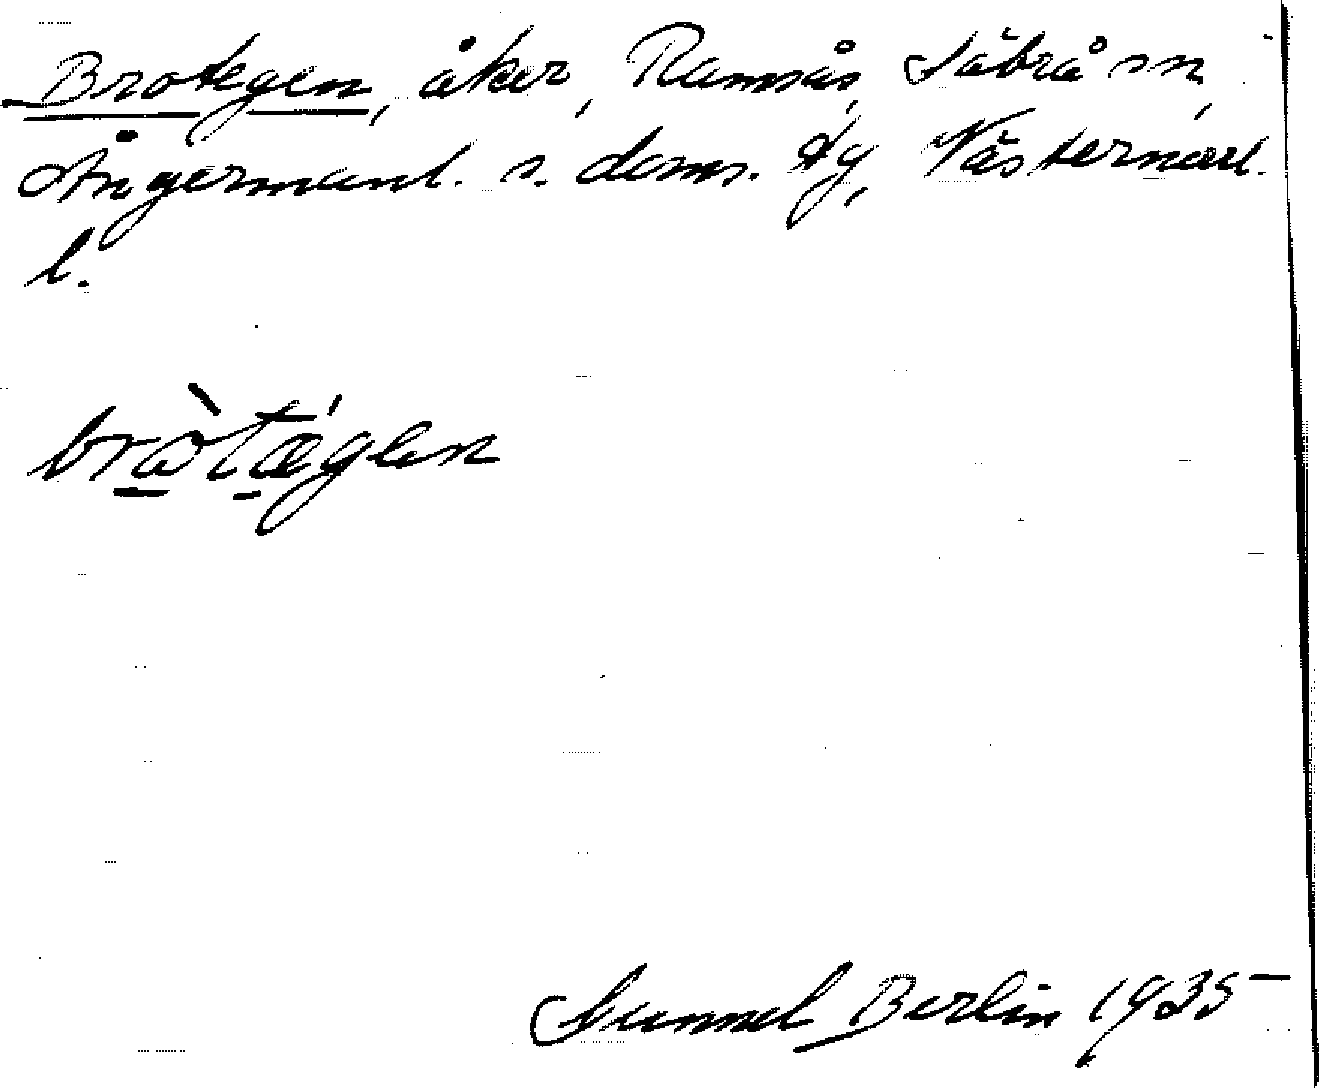 Brotegen, åker, Ramsås, Säbrå sn,
Ångermanl. s. doms. tg, Västernorrl.
l.
bròtǽgen
Gunnel Berlin 1935